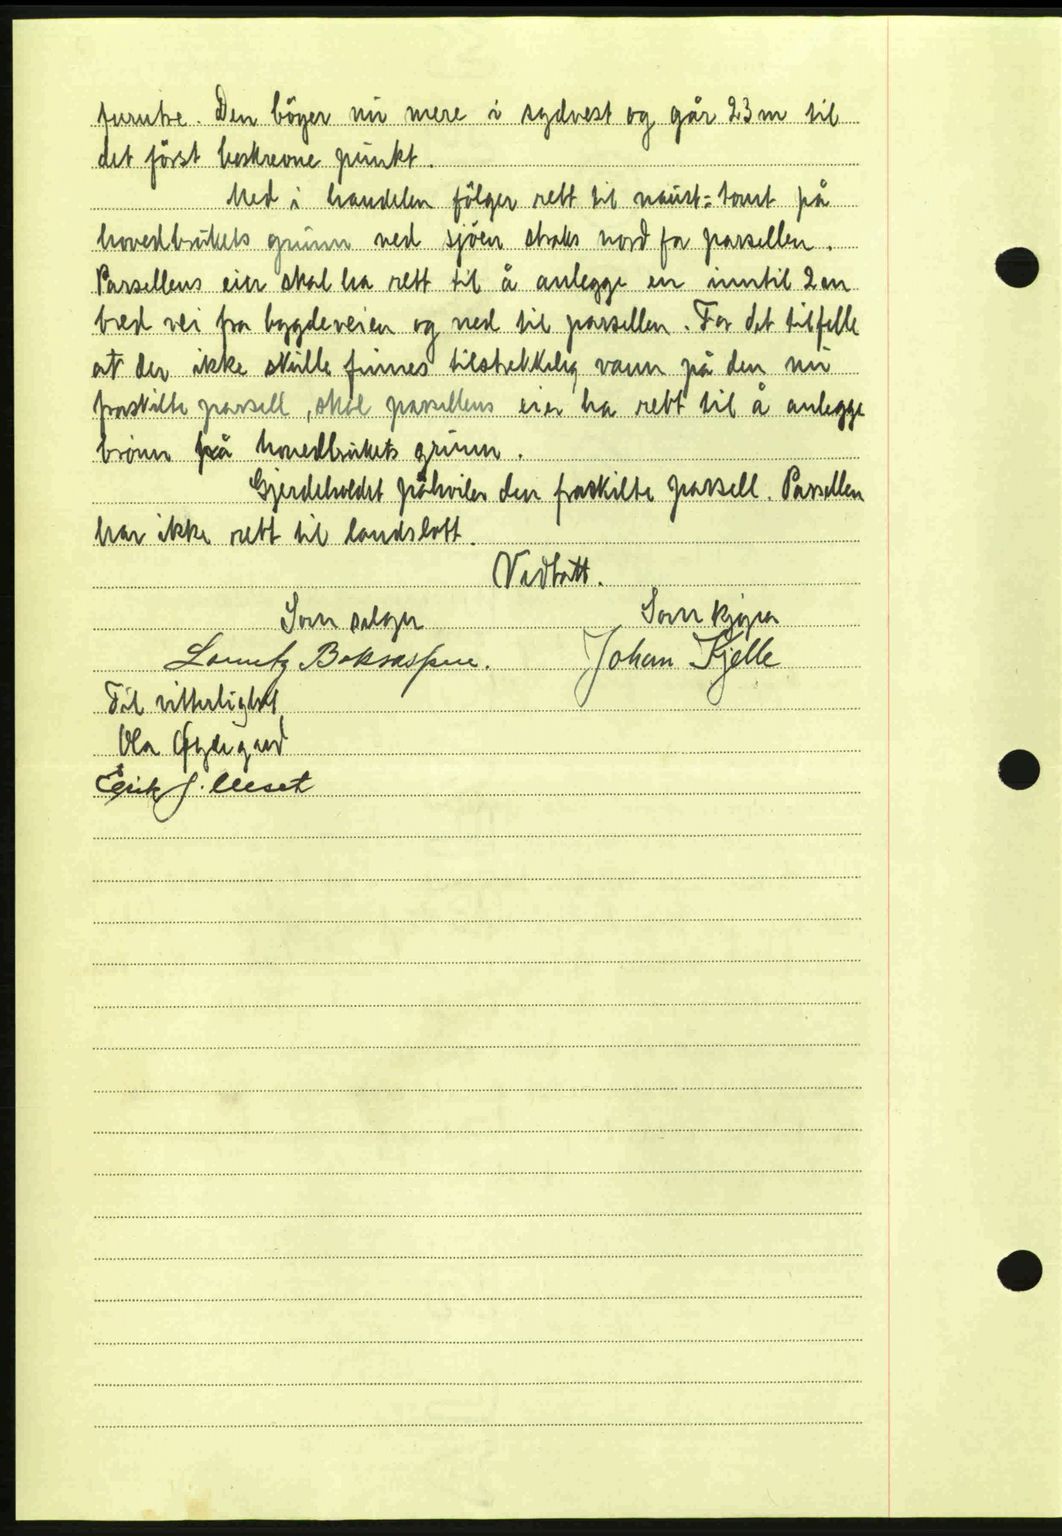 furutre. Den böyer nu mere i sydvest og går 23 m til
det först beskrevne punkt.
Med i handelen fölger rett til naust-tomt på
hovedbrukets grunn ved sjöen straks nord for parsellen.
Parsellens eier skal ha rett til å anlegge en inntil 2 m
bred vei fra bygdeveien og ned til parsellen. For det tilfelle
at der ikke skulle finnes tilstrekkelig vann på den nu
fraskilte parsell, skal parsellens eier ha rett til å anlegge
brönn på hovedbrukets grunn.
Gjerdeholdet påhviler den fraskilte parsell. Parsellen
har ikke rett til landslott.
Vedtatt.
Som selger Som kjöper
Johan Kjelle
Til vitterlighet
Ola
Erik J.